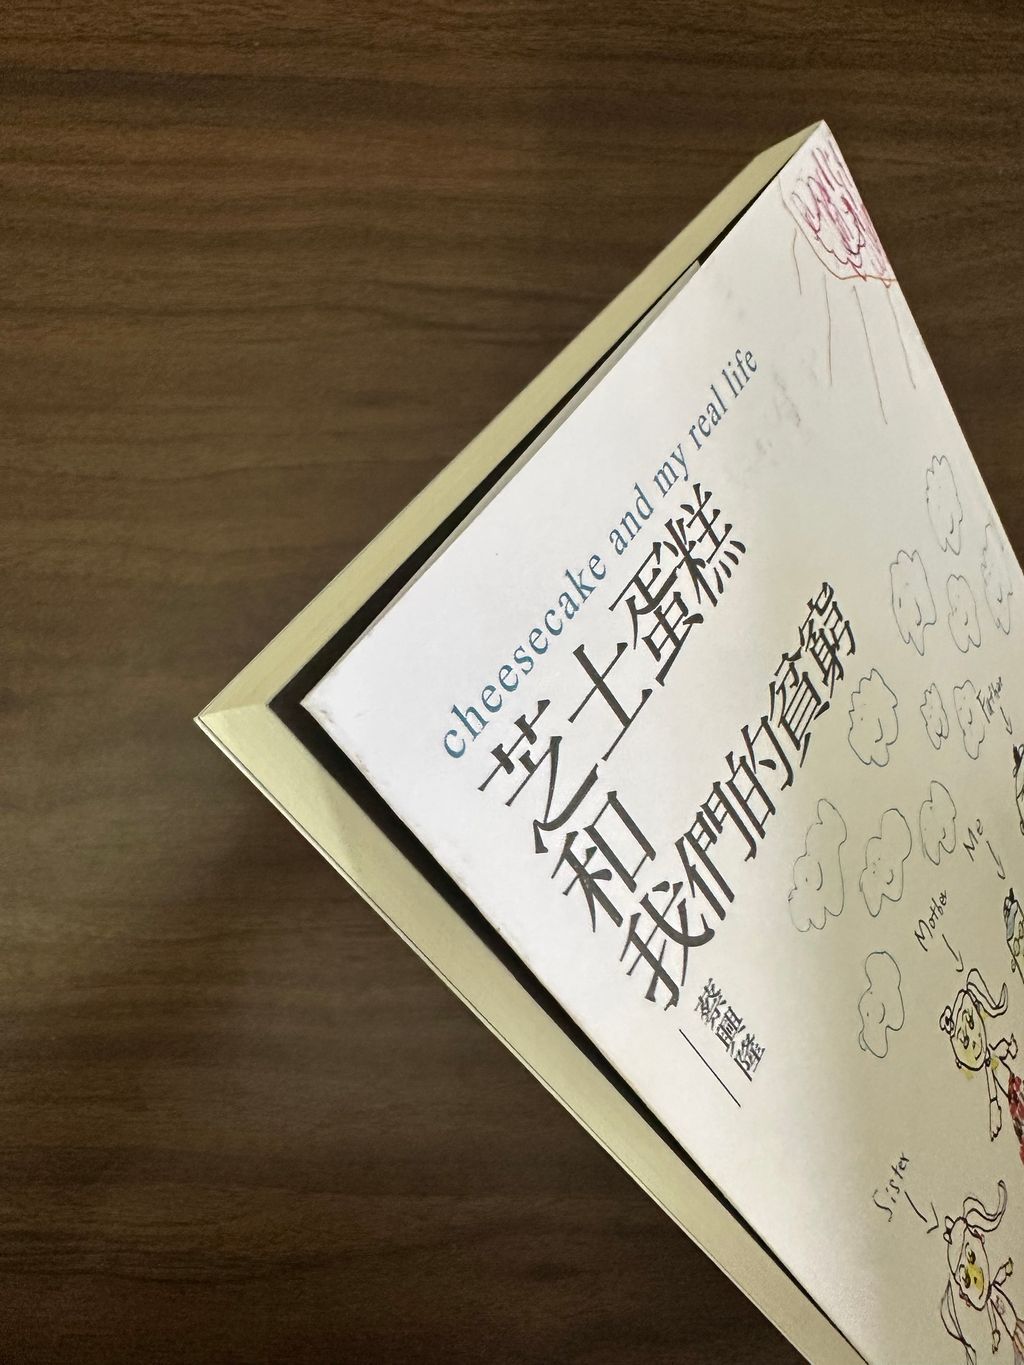 cheesecake and my real life
芝士蛋糕
和
我們的貧窮
蔡興隆
Father
Me
Mother
Sister